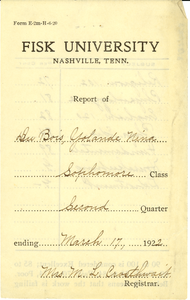 Form E-2m-H-6-20
FISK UNIVERSITY
NASHVILLE, TENN.
Report of
Du Bois, Yolande Nina
Sophomore Class
Second Quarter
ending March 17, 1922
Mrs. M. L. Crosthwait
Registrar.